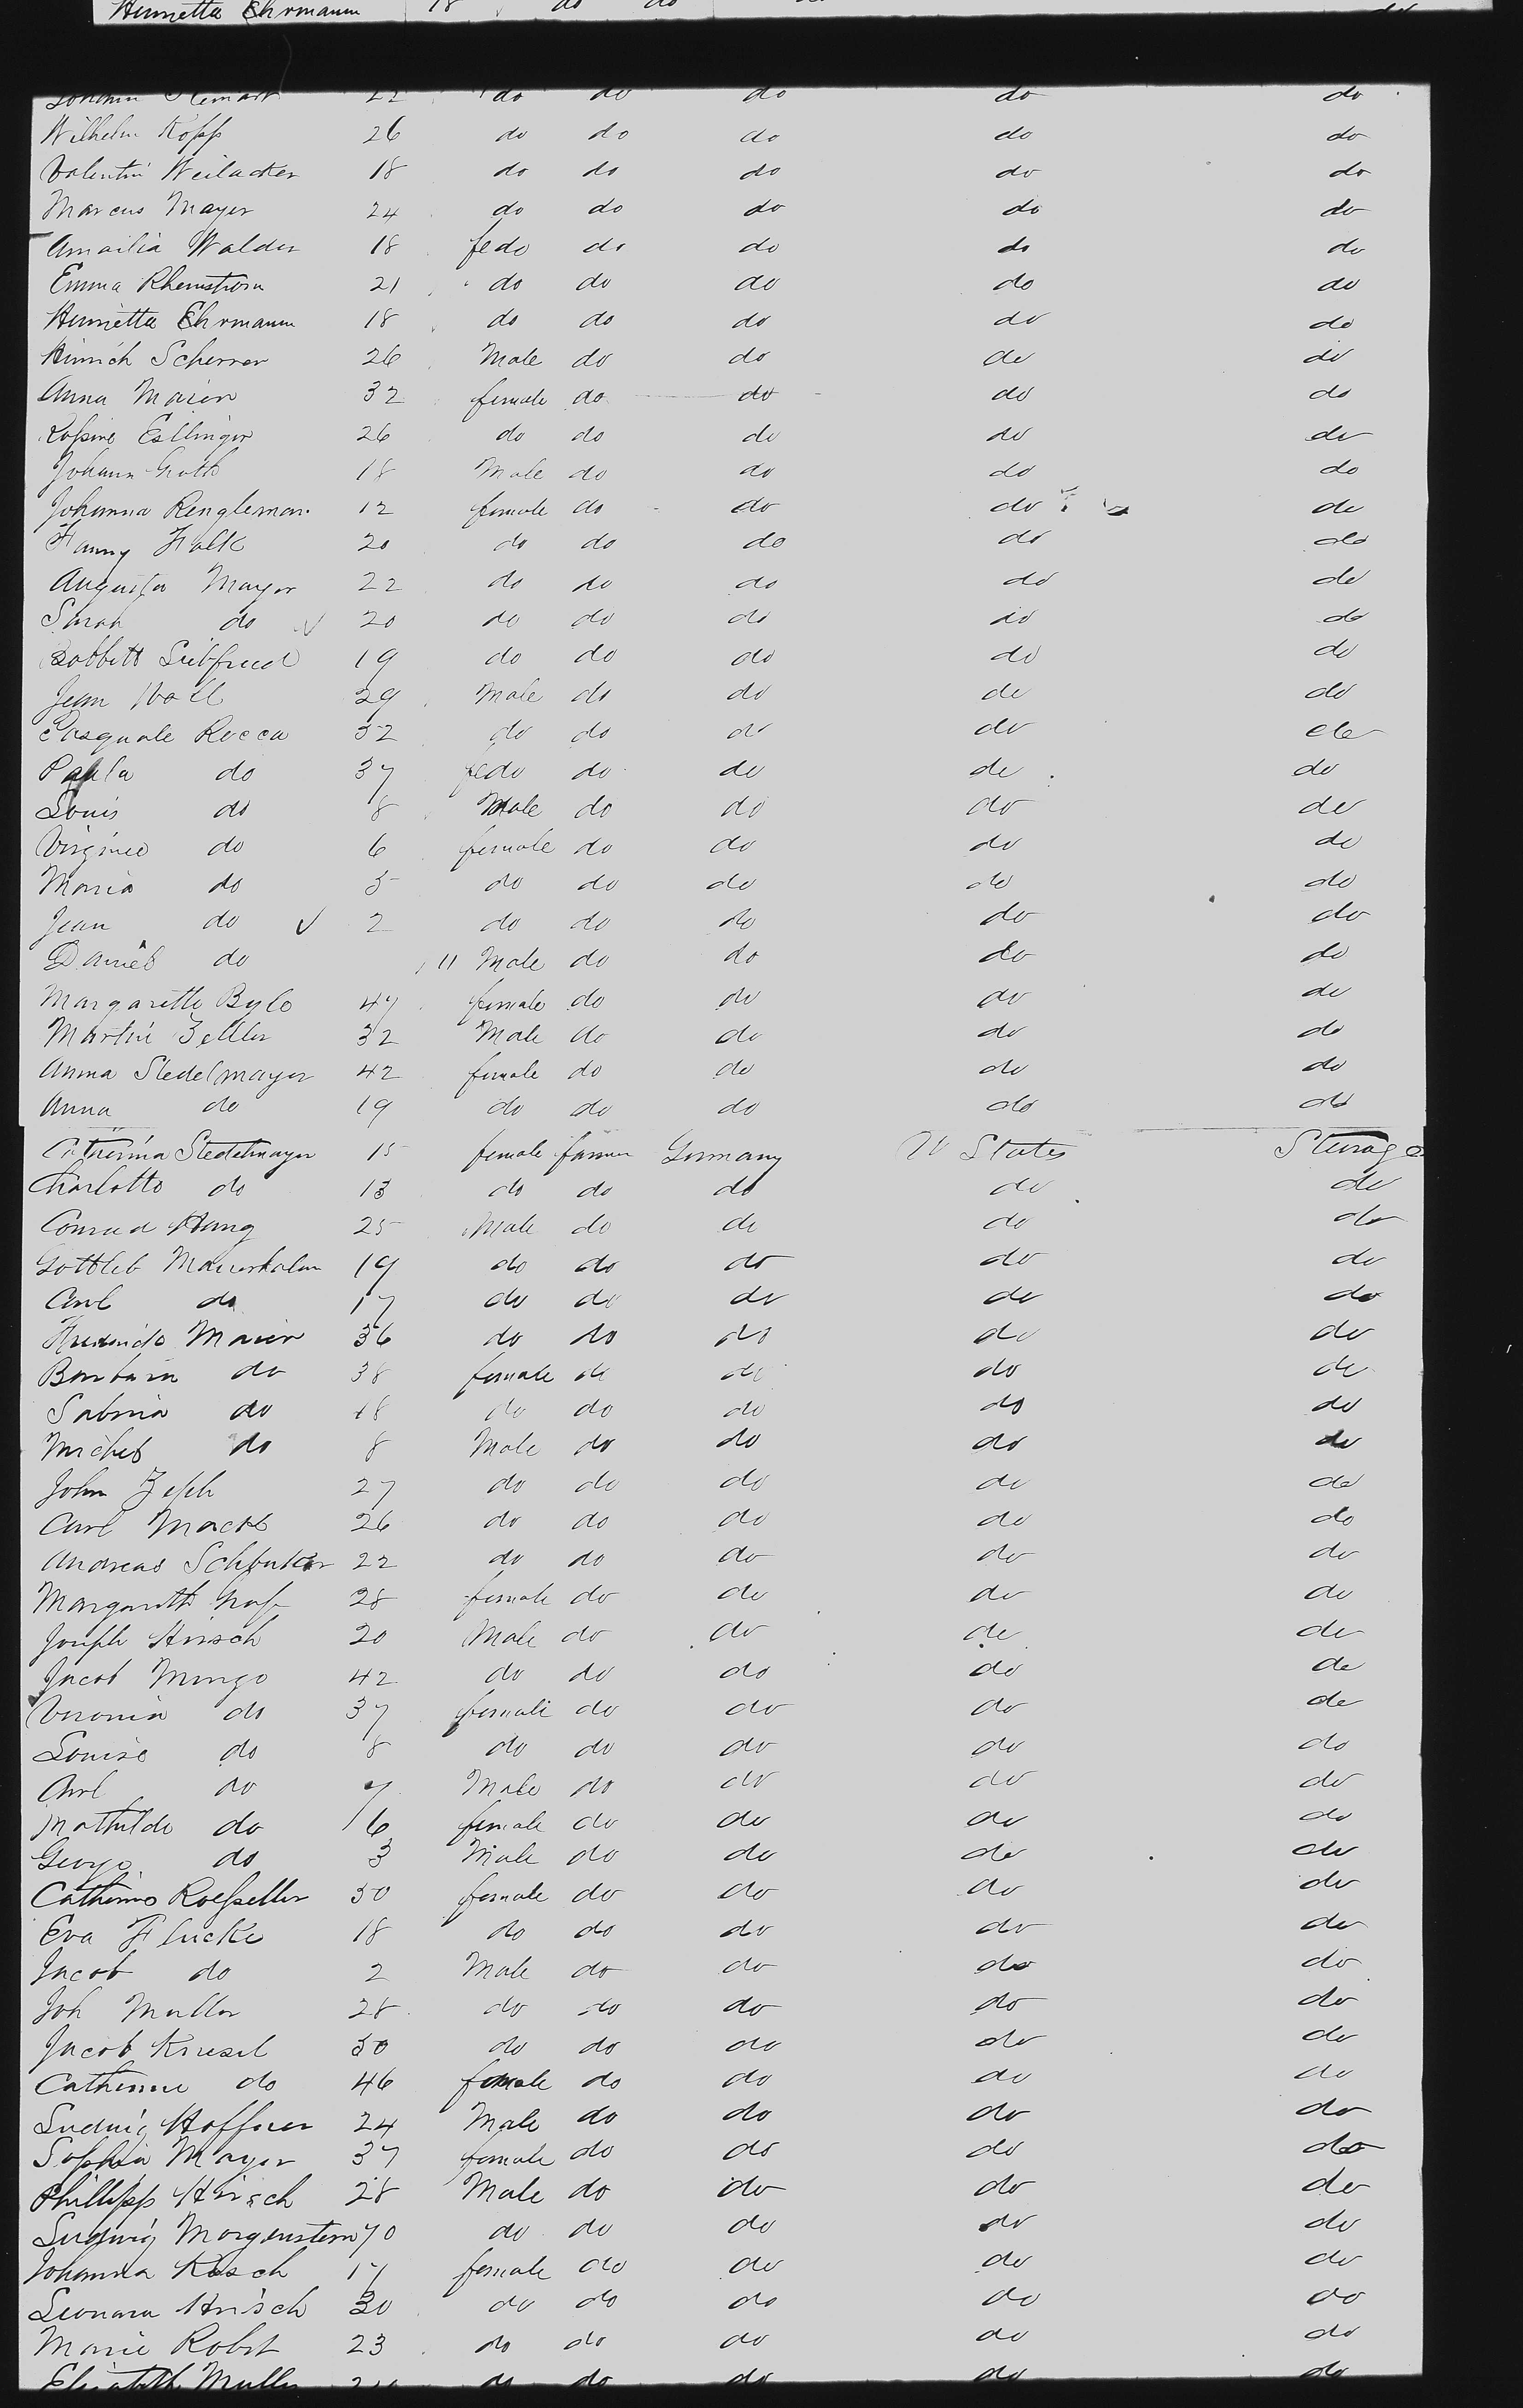 Henrietta Ehrmann 18 do do do
22 do do do do do
Wilhelm Kopp 26 do do do do do
Valentin Weilacker 18 do do do do do
Marcus Mayer 24 do do do do do
Amailia Walder 18 fedo do do do do
Emma Rhemstrom 21 do do do do do
Henrietta Ehrmann 18 do do do do do
Hinrich Scherrer 26 Male do do do do
Anna Maier 32 female do do do do
Rosine Esslinger 26 do do do do do
Johann Groth 18 Male do do do do
Johanna Rengleman 12 female do do do do
Fanny Falk 20 do do do do do
Augusta Mayer 22 do do do do do
Sarah do 20 do do do do do
Babbett Siebfried 19 do do do do do
Jean Noll 29 Male do do do do
Pasquale Rocca 32 do do do do do
Paula do 37 fedo do do do do
Louis do 8 Male do do do do
Virginie do 6 female do do do do
Maria do 5 do do do do do
Jean do 2 do do do do do
Daniel do 11 Male do do do do
Margarethe Byle 47 female do do do do
Martin Zeller 32 Male do do do do
Anna Stedelmayer 42 female do do do do
Anna do 19 do do do do do
Catherina Stedelmayer 15 female farmer Germany U States Steerage
Charlotte do 13 do do do do do
Conrad Haug 25 Male do do do do
Gottlieb 19 do do do do do
Carl do 17 do do do do do
Maier 36 do do do do do
Barbara do 38 female do do do do
Sabina do 18 do do do do do
Michel do 8 Male do do do do
John Zeph 27 do do do do do
Carl Mack 26 do do do do do
Andreas 22 do do do do do
Margareth 28 female do do do do
Joseph Hirsch 20 Male do do do do
Jacob Mungo 42 do do do do do
Veronia do 37 female do do do do
Louise do 8 do do do do do
Carl do 7 Male do do do do
Mathilde do 6 female do do do do
George do 3 Male do do do do
Catherine Roesseller 30 female do do do do
Eva Flucke 18 do do do do do
Jacob do 2 Male do do do do
Joh Muller 28 do do do do do
Jacob Kriesel 30 do do do do do
Catherine do 46 female do do do do
Ludwig Hoffner 24 Male do do do do
Sophia Mayer 37 female do do do do
Phillipp Hirsch 28 Male do do do do
Ludwig Morgenstern 70 do do do do do
Johanna Kosch 17 female do do do do
Leonara Hirsch 30 do do do do do
Marie Robst 23 do do do do do
Elisabeth Muller do do do do do